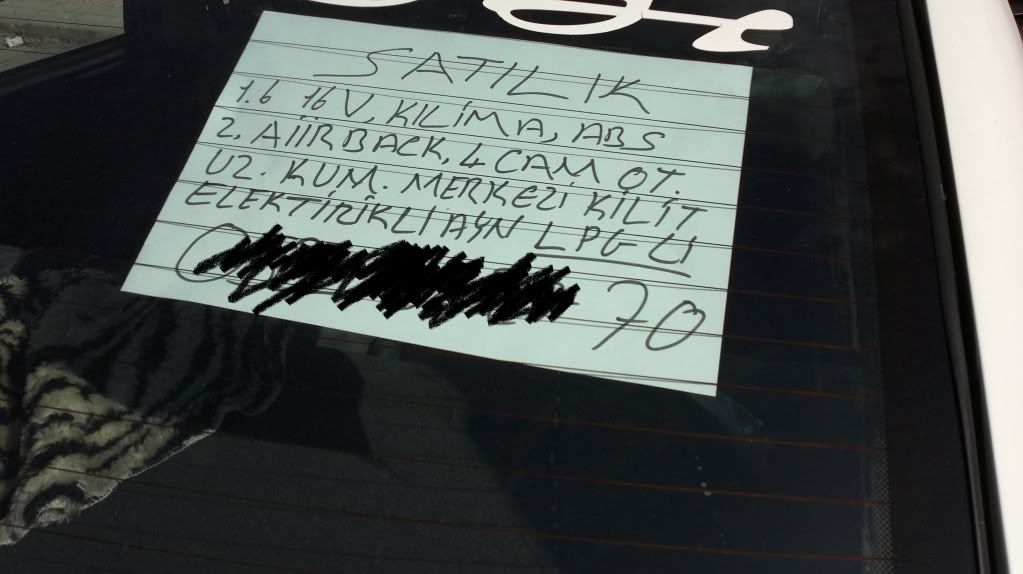 SATILIK
1.6 16V, KILİMA, ABS
2, AİİRBACK, 4 CAM OT.
UZ. KUM. MERKEZİ KİLİT
ELEKTİRİKLİ AYN LPGLİ
0 70